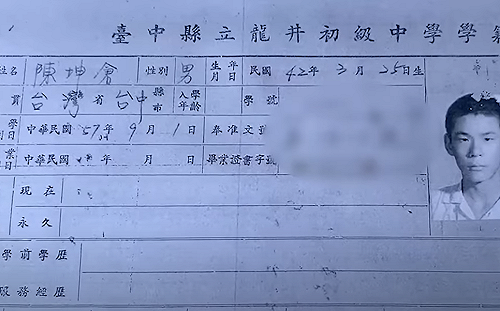 臺中縣立龍井初級中學學籍
姓名 陳坤倉 性別 男 生年月日 民國 42年 3月 25日生
貫 台灣省 台中縣市 入學年齡 學號
學日 中華民國 57年 9月 1日 奉准文號
業日 中華民國 年 月 日 畢業證書字號
現在
永久
學前學歷
服務經歷